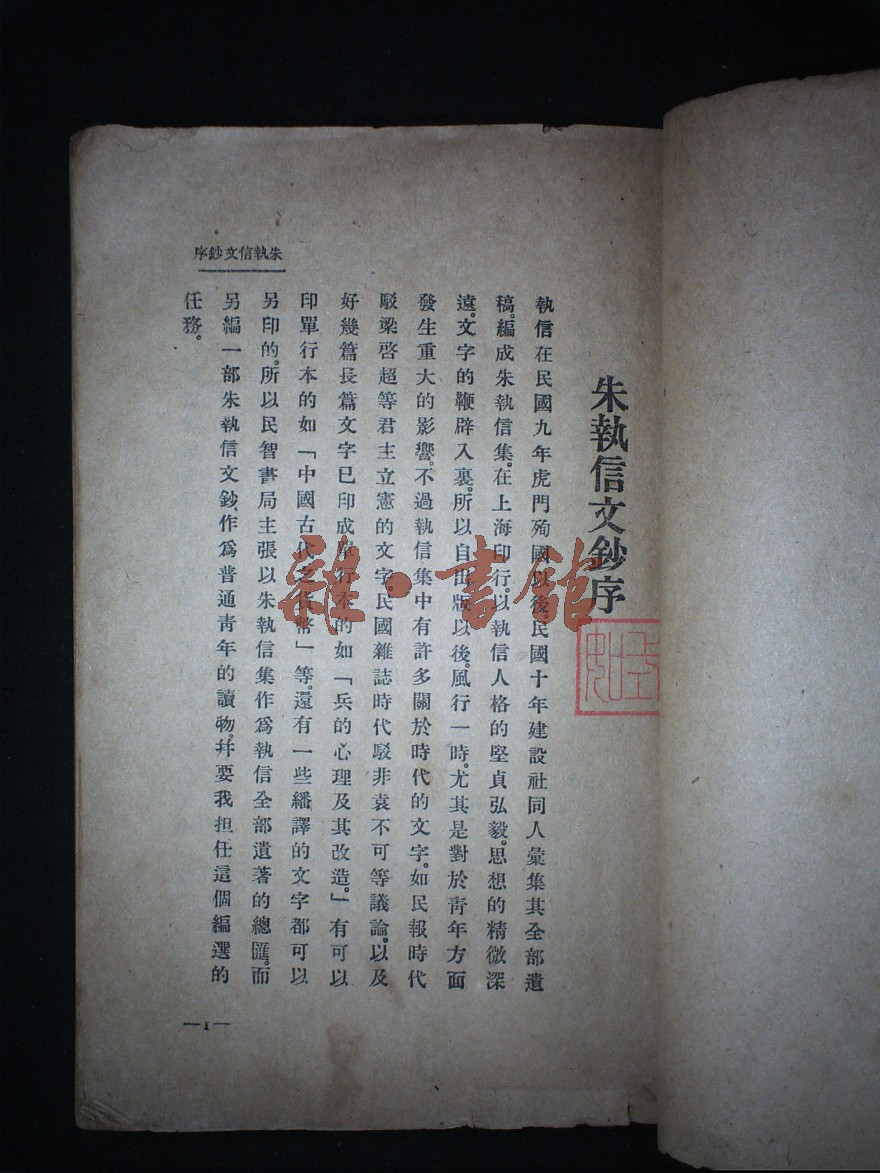 朱執信文鈔序
執信在民國九年虎門殉國以後。民國十年建設社同人彙集其全部遺
稿。編成朱執信集。在上海印行。以執信人格的堅貞弘毅。思想的精微深
遠。文字的鞭辟入裏。所以自出版以後。風行一時。尤其是對於靑年方面
發生重大的影響。不過執信集中有許多關於時代的文字。如民報時代
駁梁啓超等君主立憲的文字。民國雜誌時代駁非袁不可等議論。以及
好幾篇長篇文字已印成單行本的如「兵的心理及其改造。」有可以
印單行本的如「中國古代之貨幣」等。還有一些繙譯的文字都可以
另印的。所以民智書局主張以朱執信集作爲執信全部遺著的總匯。而
另編一部朱執信文鈔、作爲普通靑年的讀物。幷要我担任這個編選的
任務。
朱執信文鈔序
—1—
雜·書館